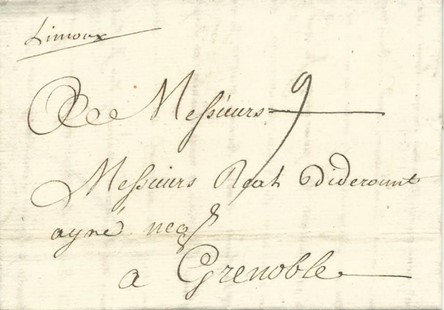 Limoux
A Messieurs 9
Messieurs Reah Dideront
ayné neg.
a Grenoble